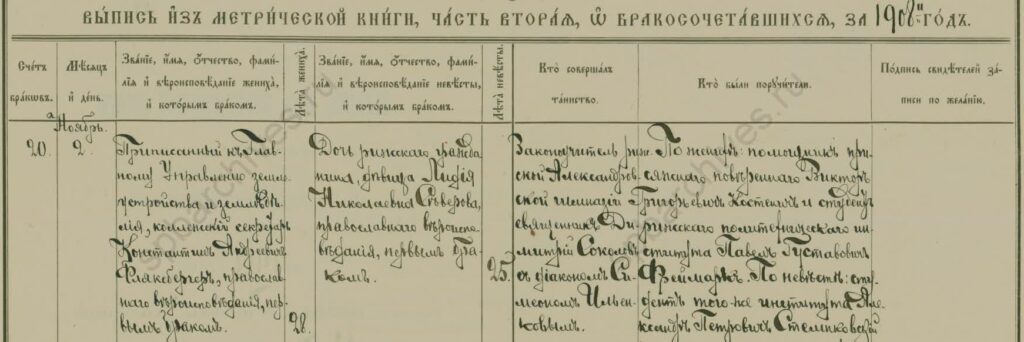 ВЫПИСЬ ИЗЪ МЕТРИЧЕСКОЙ КНИГИ, ЧАСТЬ ВТОРАЯ, Ѿ БРАКОСОЧЕТАВШИХСЯ, ЗА 1908й ГОДЪ.
Счетъ браковъ.
Мѣсяцъ и день.
Званіе, имя, отчество, фами-
лія и вѣроисповѣданіе жениха,
и которымъ бракомъ.
Лѣта жениха.
Званіе, имя, отчество, фами-
лія и вѣроисповѣданіе невѣсты,
и которымъ бракомъ.
Лѣта невѣсты.
Кто совершалъ
таинство.
Кто были поручители.
Подпись свидѣтелей за-
писи по желанію.
20.
Ноябрь.
2.
Приписанный къ Глав-
ному Управленію земле-
устройства и земледѣ-
лія, коллежскій секретарь
Константинъ Андреевичъ
Фляксбергеръ, православ-
наго вѣроисповѣданія, пер-
вымъ бракомъ.
28.
Дочь рижскаго гражда-
нина, дѣвица Лидія
Николаевна Сѣверова,
православнаго вѣроиспо-
вѣданія, первымъ бра-
комъ.
25.
Законоучитель риж-
ской Александров-
ской гимназіи
священникъ Ди-
митрій Соколовъ
съ діакономъ Си-
меономъ Ильен-
ковымъ.
По женихѣ: помощникъ при-
сяжнаго повѣреннаго Викторъ
Григорьевичъ Костенич и студентъ
рижскаго политехническаго ин-
ститута Павелъ Густавовичъ
Фреймаркъ. По невѣстѣ: сту-
дентъ того-же института Але-
ксандръ Петровичъ
spbarchives.ru